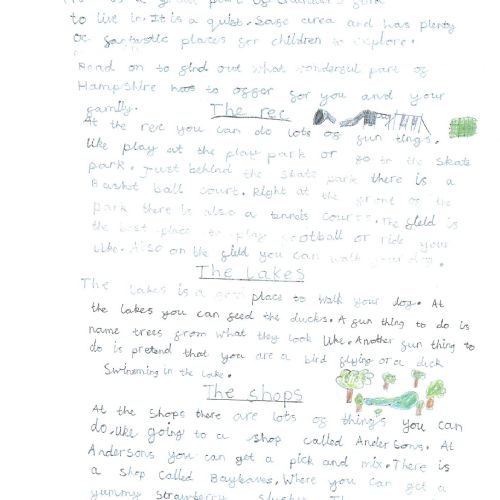 is a great part of
to live in. It is a quiet, safe area and has plenty
of fantastic places for children to explore.
Read on to find out what wonderful part of
Hampshire has to offer for you and your
family.
The rec
At the rec you can do lots of fun tings.
like play at the play park or go to the skate
park. Just behind the skate park there is a
Basket ball court. Right at the front of the
park there is also a tennis court. The field is
the best place to play football or ride your
bike. Also on the field you can walk your dog.
The Lakes
The lakes is a good place to walk your dog. At
the lakes you can feed the ducks. A fun thing to do is
name trees from what they look like. Another fun thing to
do is pretend that you are a bird flying or a duck
Swimming in the lake.
The shops
At the shops there are lots of things you can
do, like going to a shop called Andersons. At
Andersons you can get a pick and mix. There is
a shop called Bayleaves, Where you can get a
yummy strawberry